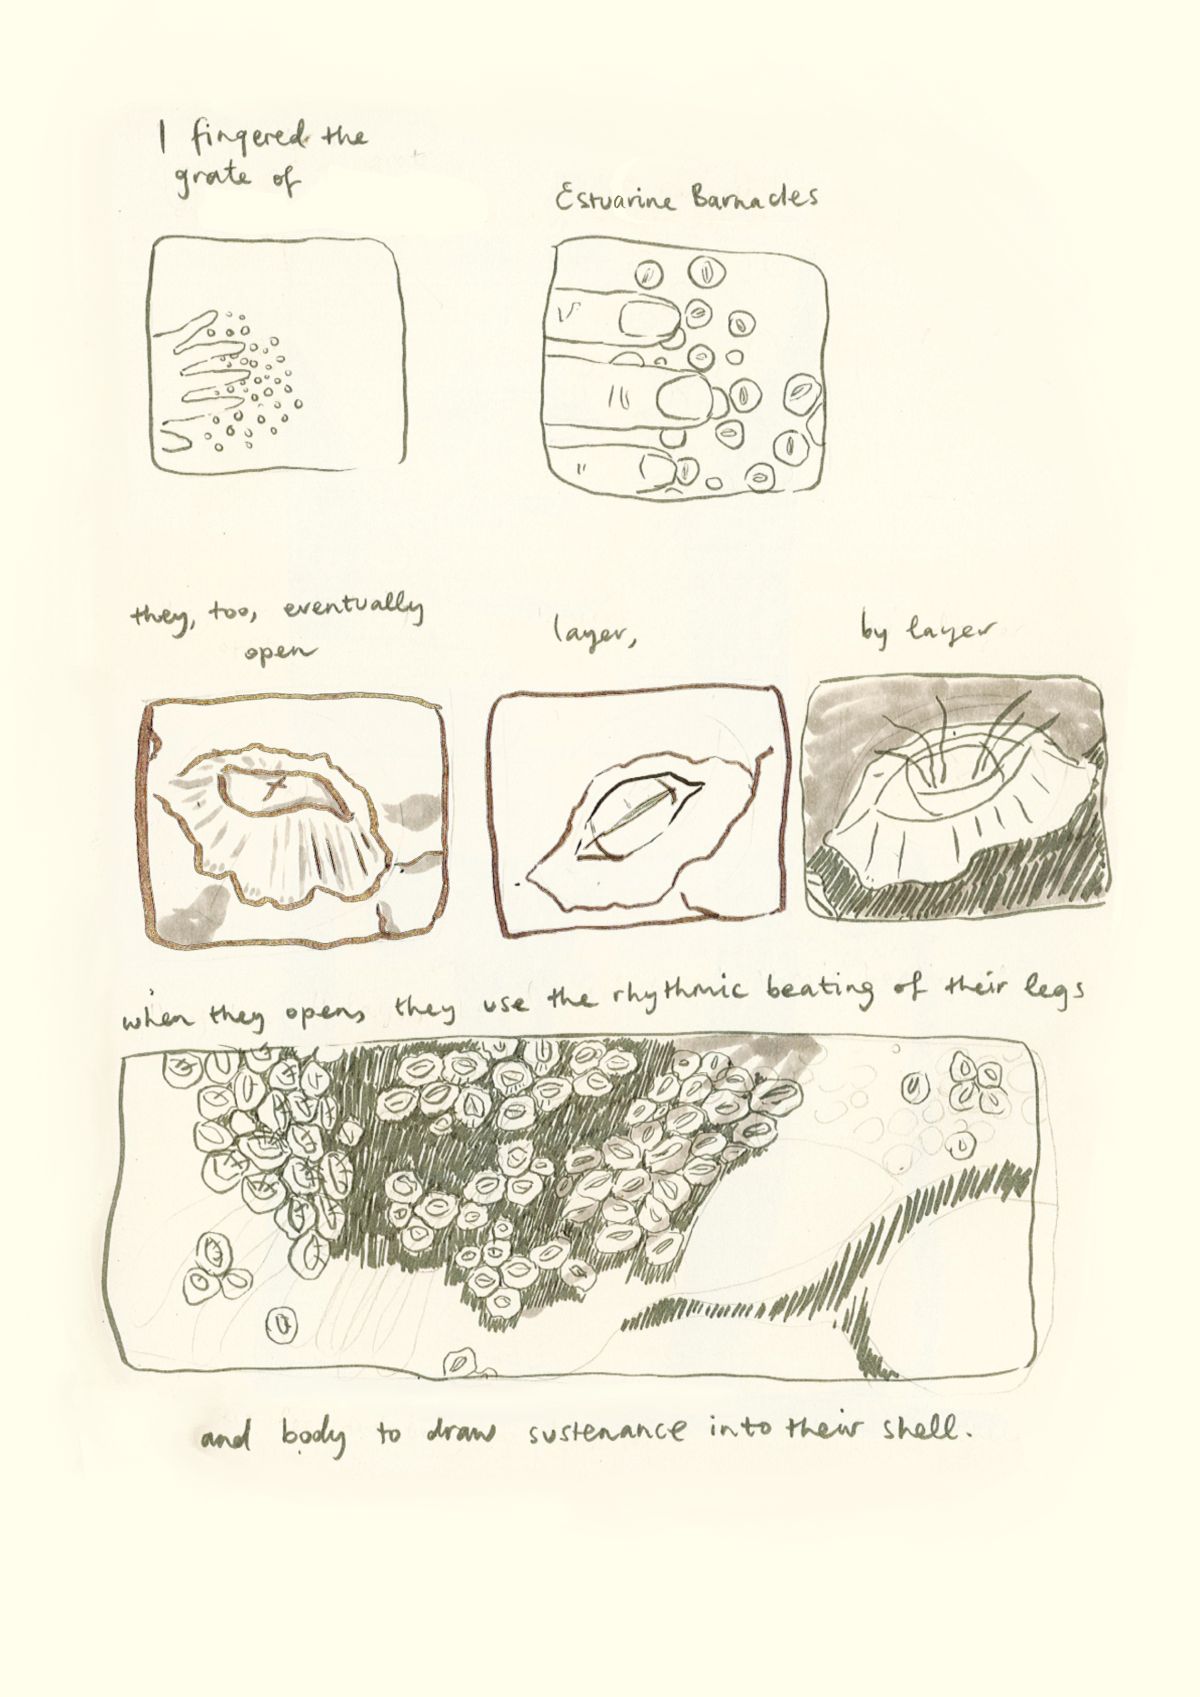 I fingered the
grate of
Estuarine Barnacles
they, too, eventually
open
layer,
by layer
when they open, they use the rhythmic beating of their legs
and body to draw sustenance into their shell.